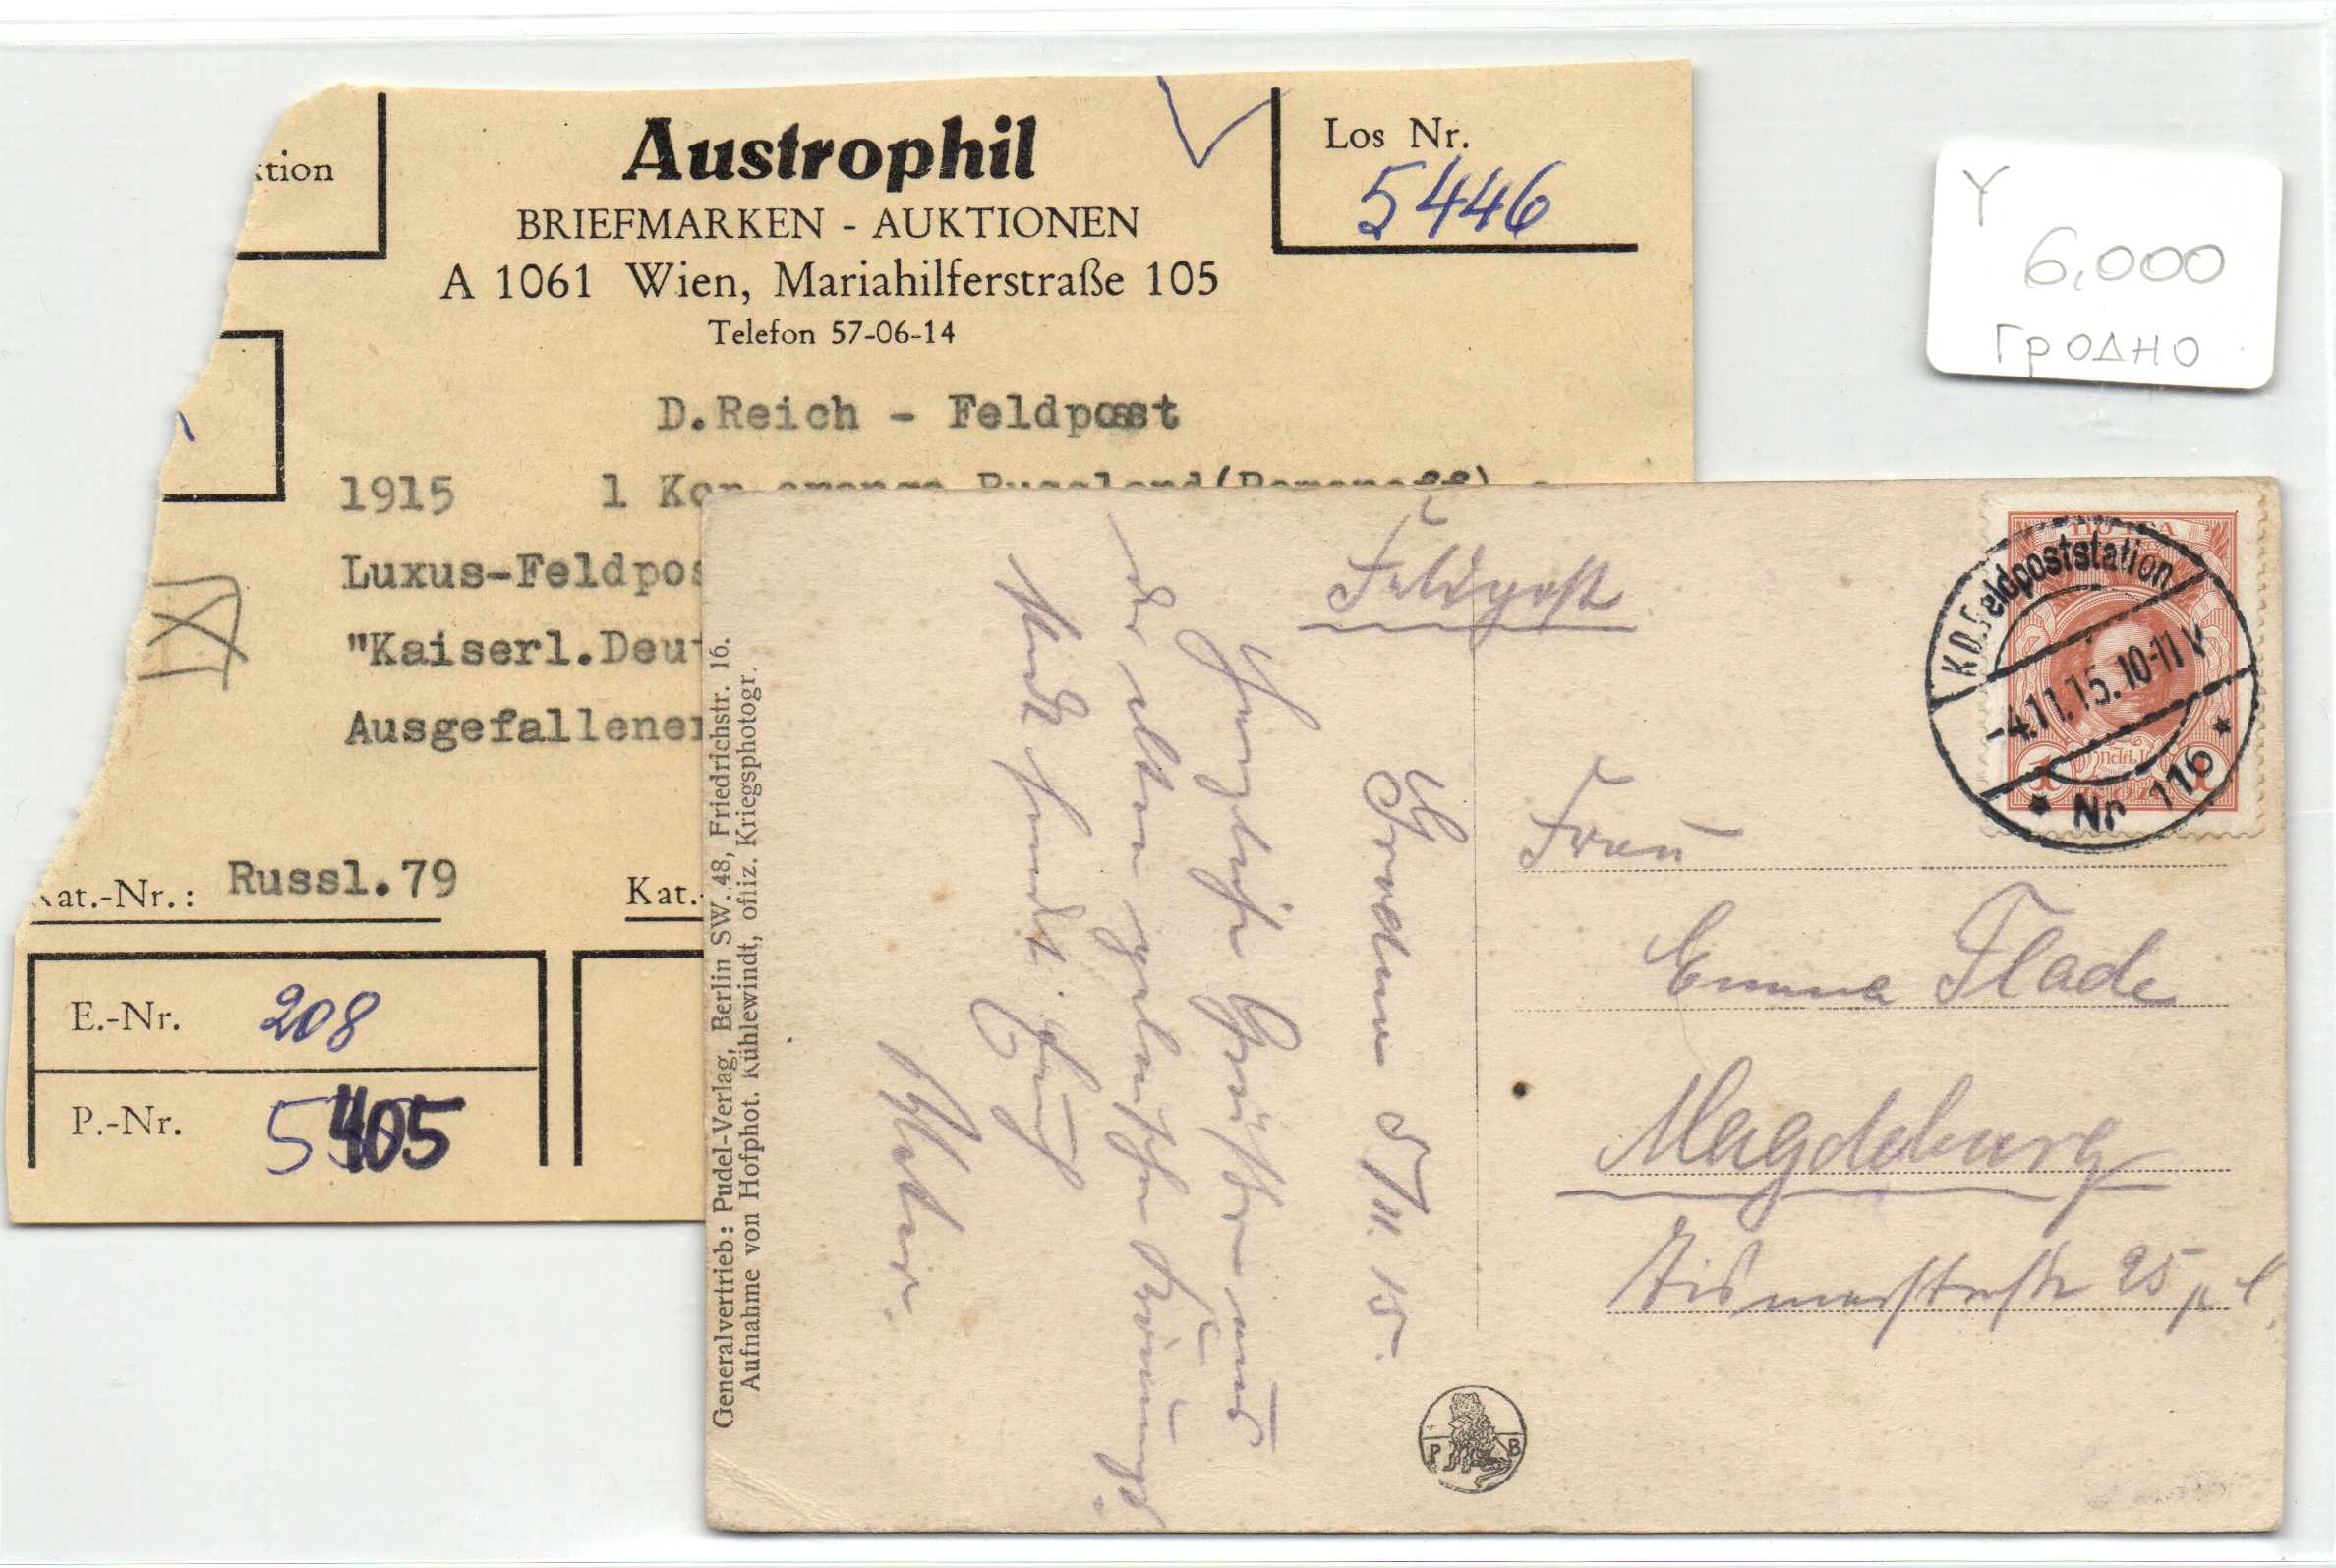 ktion
Austrophil
BRIEFMARKEN - AUKTIONEN
A 1061 Wien, Mariahilferstraße 105
Telefon 57-06-14
Los Nr.
5446
Y
6,000
Гродно
D.Reich - Feldpost
1915 1 Kop orange Russland(Romanoff)
Luxus-Feldpos
"Kaiserl.Deut
Ausgefallener
Kat.-Nr.: Russl.79
Kat.-
E.-Nr. 208
P.-Nr. 5405
Generalvertrieb: Pudel-Verlag, Berlin SW. 48, Friedrichstr. 16.
Aufnahme von Hofphot. Kühlewindt, offiz. Kriegsphotogr.
Feldpost
Grodno 5/11. 15.
Herzliche Grüße aus
der alten polnischen Krönungs-
stadt sendet Euch
Walter.
K.D. Feldpoststation
-4.11.15.10-11V
* Nr. 116 *
1 1
Frau
Emma Flade
Magdeburg
25
P B